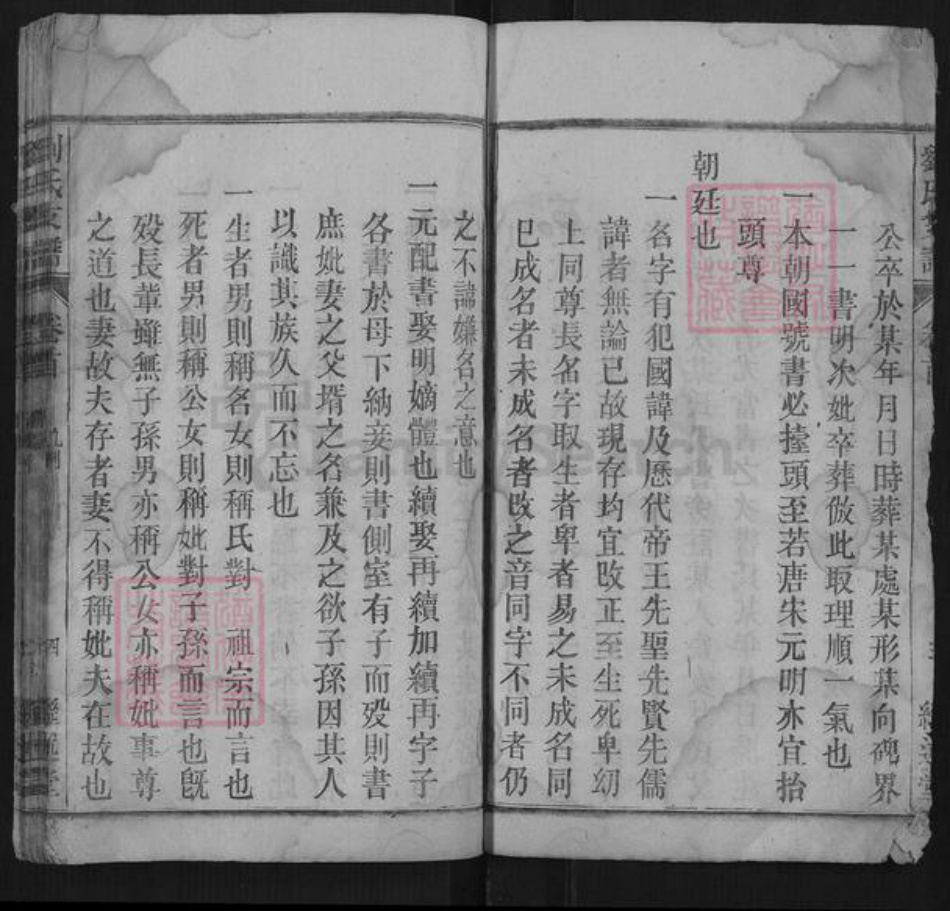 公卒於某年月日時葬某處某形某向碑界
一一書明次妣卒葬倣此取理順一氣也
一本朝國號書必擡頭至若唐宋元明亦宜抬
頭尊
朝廷也
一名字有犯國諱及歷代帝王先聖先賢先儒
諱者無論已故現存均宜改正至生死卑幼
上同尊長名字取生者卑者易之未成名同
已成名者未成名者改之音同字不同者仍
之不諱嫌名之意也
一元配書娶明嫡體也續娶再續加續再字子
各書於母下納妾則書側室有子而歿則書
庶妣妻之父壻之名兼及之欲子孫因其人
以識其族久而不忘也
一生者男則稱名女則稱氏對 祖宗而言也
一死者男則稱公女則稱妣對子孫而言也旣
歿長輩雖無子孫男亦稱公女亦稱妣事尊
之道也妻故夫存者妻不得稱妣夫在故也
劉氏支譜
卷首
四
FamilySearch